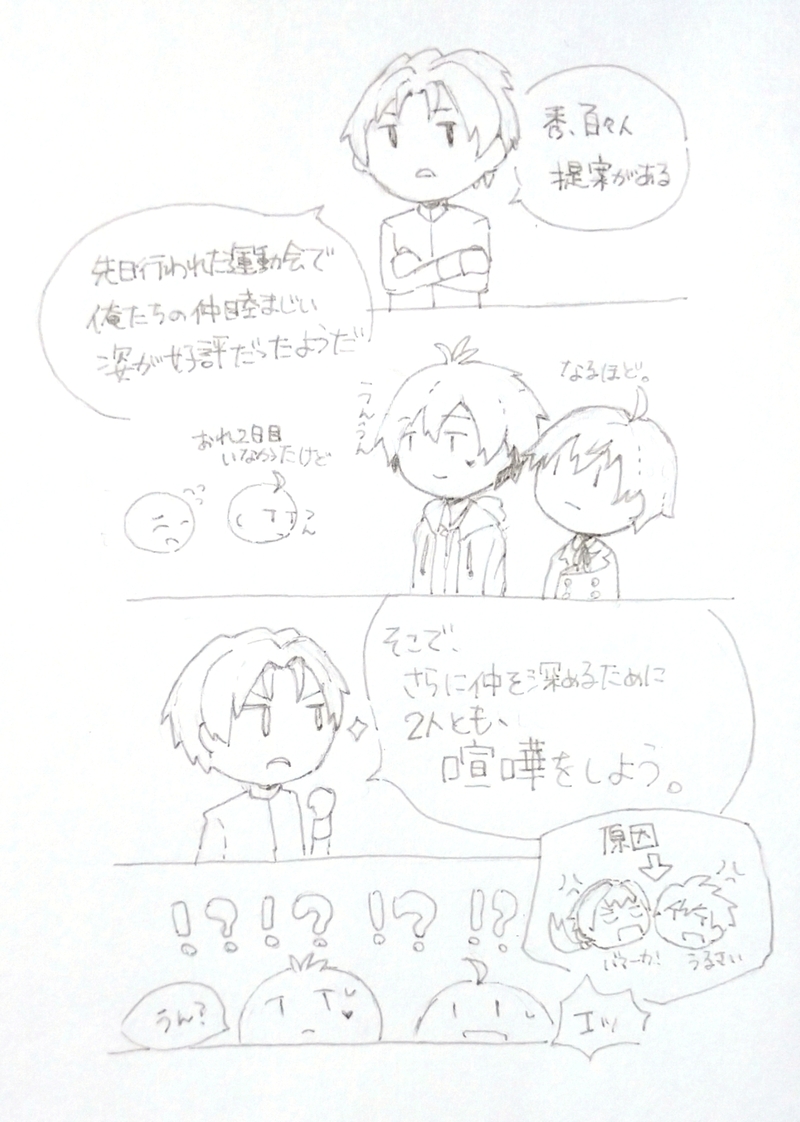 秀、百々人
提案がある
先日行われた運動会で
俺たちの仲睦まじい
姿が好評だったようだ
うんうん
なるほど。
おれ2日目
いなかったけど
うん
そこで、
さらに仲を深めるために
2人とも、
喧嘩をしよう。
原因
バァーカ!
うるさい
!?!?!?!?
うん?
エッ